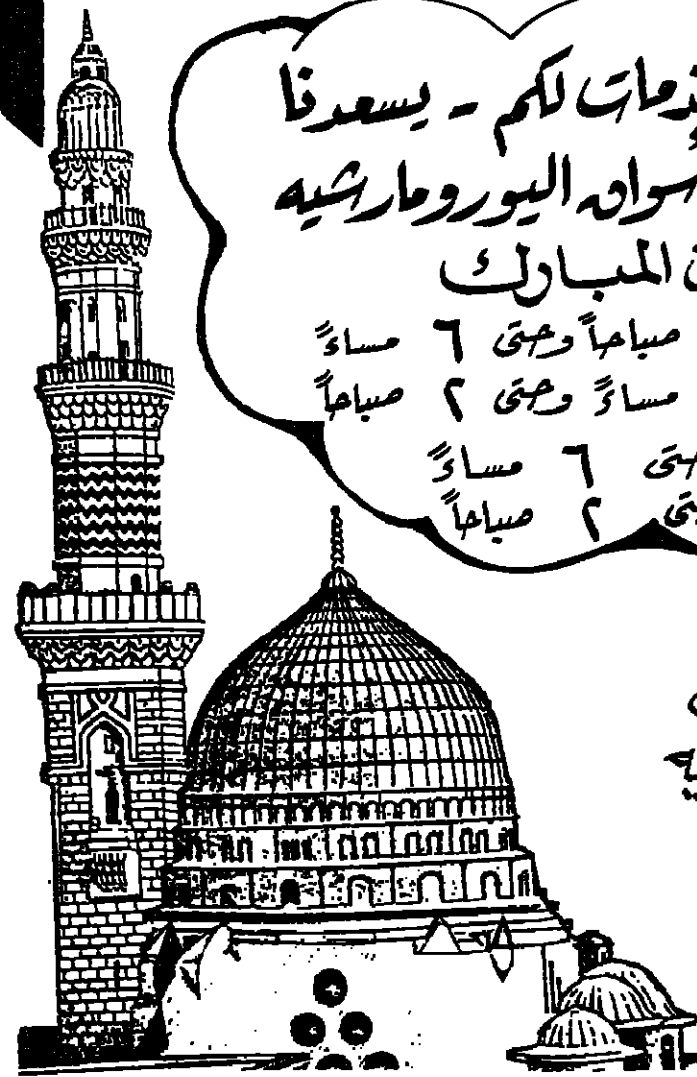 لكم - يسعدنا
اليورومارشيه
المبارك
صباحاً وحتى ٦ مساءً
مساءً وحتى ٢ صباحاً
٦ مساءً
٢ صباحاً